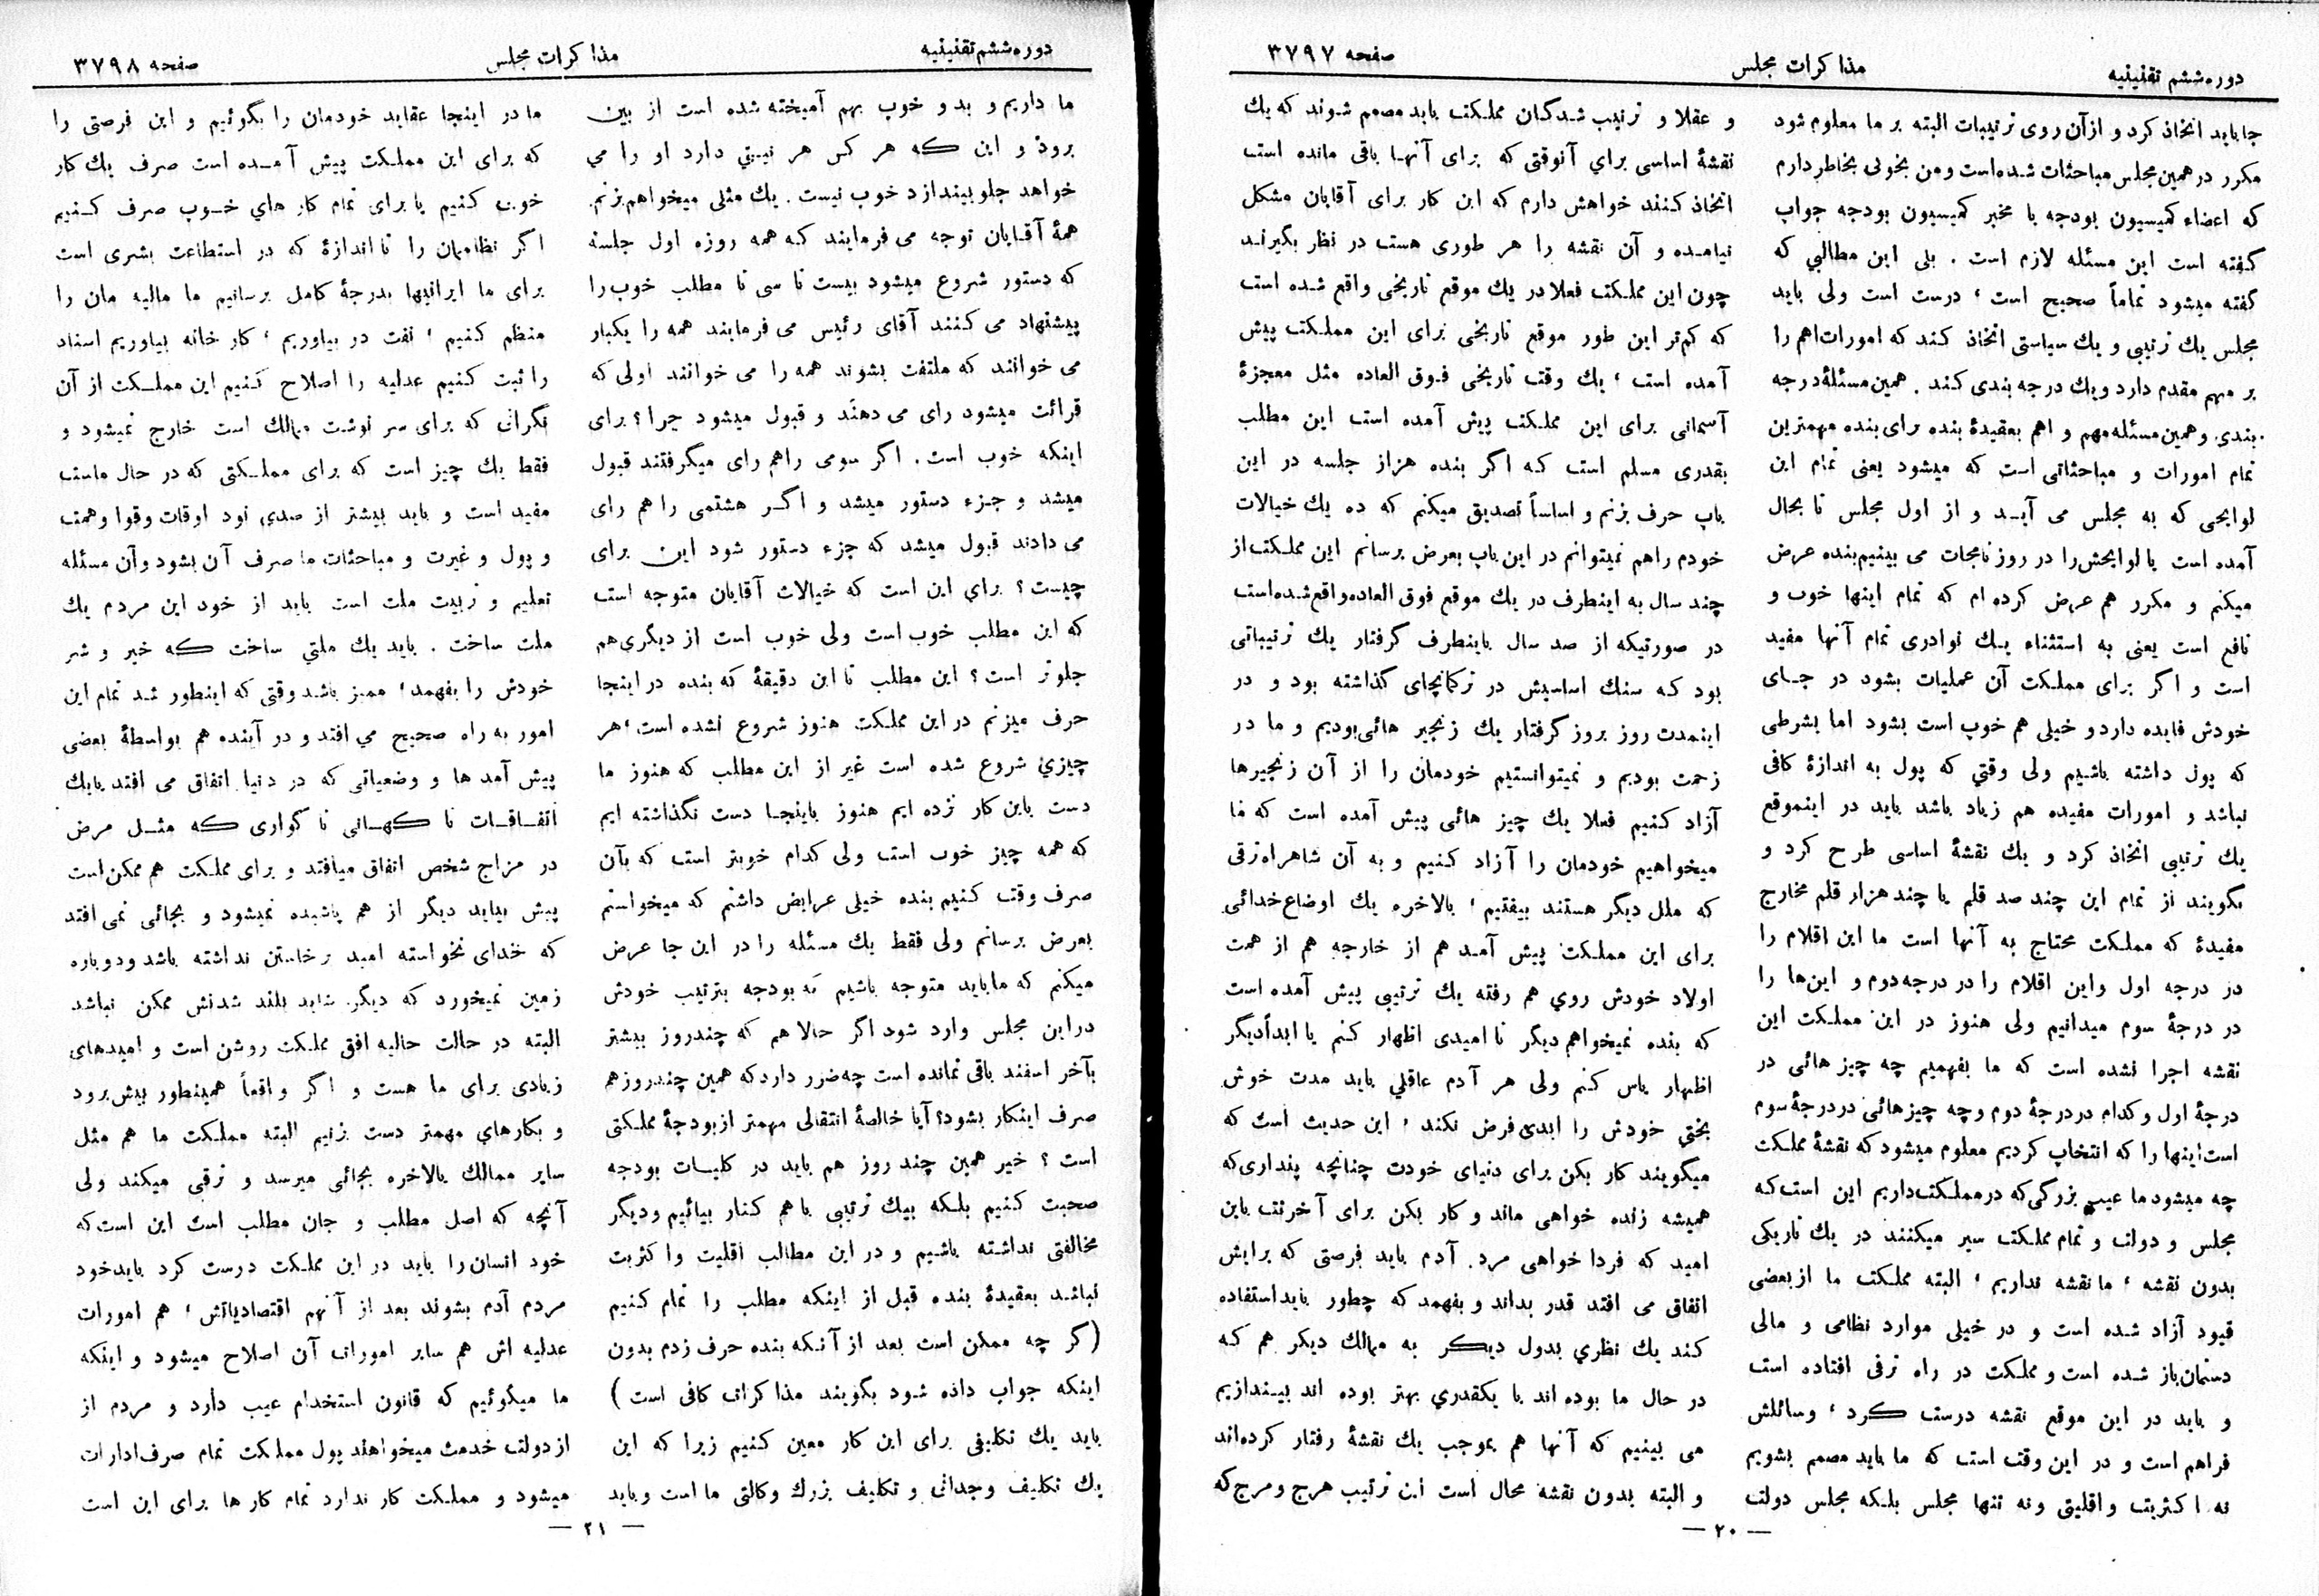 دوره ششم تقنینیه
مذاکرات مجلس
صفحه ۳۷۹۷
جا باید اتخاذ کرد و از آن روی ترتیبات البته بر ما معلوم شود
مکرر در همین مجلس مباحثات شده است و من بخوبی بخاطر دارم
که اعضاء کمیسیون بودجه یا مخبر کمیسیون بودجه جواب
گفته است این مسئله لازم است . بلی این مطالبی که
گفته میشود تماماً صحیح است ، درست است ولی باید
مجلس یك ترتیبی و یك سیاستی اتخاذ کند که امورات اهم را
بر مهم مقدم دارد و یك درجه بندی کند . همین مسئلهٔ درجه
بندی و همین مسئله مهم و اهم بعقیدهٔ بنده برای بنده مهمترین
تمام امورات و مباحثاتی است که میشود یعنی تمام این
لوایحی که به مجلس می آید و از اول مجلس تا بحال
آمده است یا لوایحش را در روزنامجات می بینیم بنده عرض
میکنم و مکرر هم عرض کرده ام که تمام اینها خوب و
نافع است یعنی به استثناء یك نوادری تمام آنها مفید
است و اگر برای مملکت آن عملیات بشود در جای
خودش فایده دارد و خیلی هم خوب است بشود اما بشرطی
که پول داشته باشیم ولی وقتی که پول به اندازهٔ کافی
نباشد و امورات مفیده هم زیاد باشد باید در اینموقع
یك ترتیبی اتخاذ کرد و یك نقشهٔ اساسی طرح کرد و
بگویند از تمام این چند صد قلم یا چند هزار قلم مخارج
مفیدهٔ که مملکت محتاج به آنها است ما این اقلام را
در درجه اول و این اقلام را در درجه دوم و این ها را
در درجهٔ سوم میدانیم ولی هنوز در این مملکت این
نقشه اجرا نشده است که ما بفهمیم چه چیز هائی در
درجهٔ اول و کدام در درجهٔ دوم و چه چیز هائی در درجهٔ سوم
است اینها را که انتخاب کردیم معلوم میشود که نقشهٔ مملکت
چه میشود ما عیب بزرگی که در مملکت داریم این است که
مجلس و دولت و تمام مملکت سیر میکنند در یك تاریکی
بدون نقشه ، ما نقشه نداریم ، البته مملکت ما از بعضی
قیود آزاد شده است و در خیلی موارد نظامی و مالی
دستمان باز شده است و مملکت در راه ترقی افتاده است
و باید در این موقع نقشه درست کرد ، وسائلش
فراهم است و در این وقت است که ما باید مصمم بشویم
نه اکثریت و اقلیتی و نه تنها مجلس بلکه مجلس دولت
و عقلا و تربیت شدگان مملکت باید مصمم شوند که یك
نقشهٔ اساسی برای آنوقتی که برای آنها باقی مانده است
اتخاذ کنند خواهش دارم که این کار برای آقایان مشکل
نیامده و آن نقشه را هر طوری هست در نظر بگیرند
چون این مملکت فعلا در یك موقع تاریخی واقع شده است
که کم تر این طور موقع تاریخی برای این مملکت پیش
آمده است ، یك وقت تاریخی فوق العاده مثل معجزهٔ
آسمانی برای این مملکت پیش آمده است این مطلب
بقدری مسلم است که اگر بنده هزار جلسه در این
باب حرف بزنم و اساساً تصدیق میکنم که ده یك خیالات
خودم را هم نمیتوانم در این باب بعرض برسانم این مملکت از
چند سال به اینطرف در یك موقع فوق العاده واقع شده است
در صورتیکه از صد سال باینطرف گرفتار یك ترتیباتی
بود که سنك اساسیش در ترکمانچای گذاشته بود و در
اینمدت روز بروز گرفتار یك زنجیر هائی بودیم و ما در
زحمت بودیم و نمیتوانستیم خودمان را از آن زنجیرها
آزاد کنیم فعلا یك چیز هائی پیش آمده است که ما
میخواهیم خودمان را آزاد کنیم و به آن شاهراه ترقی
که ملل دیگر هستند بیفتیم ، بالاخره یك اوضاع خدائی
برای این مملکت پیش آمد هم از خارجه هم از همت
اولاد خودش روی هم رفته یك ترتیبی پیش آمده است
که بنده نمیخواهم دیگر نا امیدی اظهار کنم یا ابداً دیگر
اظهار یاس کنم ولی هر آدم عاقلی باید مدت خوش
بختی خودش را ابدی فرض نکند ، این حدیث است که
میگویند کار بکن برای دنیای خودت چنانچه پنداری که
همیشه زنده خواهی ماند و کار بکن برای آخرتت باین
امید که فردا خواهی مرد . آدم باید فرصتی که برایش
اتفاق می افتد قدر بداند و بفهمد که چطور باید استفاده
کند یك نظری بدول دیگر به ممالك دیگر هم که
در حال ما بوده اند یا یکقدری بهتر بوده اند بیندازیم
می بینیم که آنها هم بموجب یك نقشهٔ رفتار کرده اند
و البته بدون نقشه محال است این ترتیب هرج و مرج که
— ۲۰ —
دوره ششم تقنینیه
مذاکرات مجلس
صفحه ۳۷۹۸
ما داریم و بد و خوب بهم آمیخته شده است از بین
برود و این که هر کس هر نیتی دارد او را می
خواهد جلو بیندازد خوب نیست . یك مثلی میخواهم بزنم .
همهٔ آقایان توجه می فرمایند که همه روزه اول جلسه
که دستور شروع میشود بیست تا سی تا مطلب خوب را
پیشنهاد می کنند آقای رئیس می فرمایند همه را یکبار
می خوانند که ملتفت بشوند همه را می خوانند اولی که
قرائت میشود رای می دهند و قبول میشود چرا ؟ برای
اینکه خوب است . اگر سومی را هم رای میگرفتند قبول
میشد و جزء دستور میشد و اگر هشتمی را هم رای
می دادند قبول میشد که جزء دستور شود این برای
چیست ؟ برای این است که خیالات آقایان متوجه است
که این مطلب خوب است ولی خوب است از دیگری هم
جلوتر است ؟ این مطلب تا این دقیقهٔ که بنده در اینجا
حرف میزنم در این مملکت هنوز شروع نشده است ، هر
چیزی شروع شده است غیر از این مطلب که هنوز ما
دست باین کار نزده ایم هنوز باینجا دست نگذاشته ایم
که همه چیز خوب است ولی کدام خوبتر است که بآن
صرف وقت کنیم بنده خیلی عرایض داشتم که میخواستم
بعرض برسانم ولی فقط یك مسئله را در این جا عرض
میکنم که ما باید متوجه باشیم که بودجه بترتیب خودش
در این مجلس وارد شود اگر حالا هم که چند روز بیشتر
بآخر اسفند باقی نمانده است چه ضرر دارد که همین چند روز هم
صرف اینکار بشود ؟ آیا خالصهٔ انتقالی مهمتر از بودجهٔ مملکتی
است ؟ خیر همین چند روز هم باید در کلیات بودجه
صحبت کنیم بلکه بیك ترتیبی با هم کنار بیائیم و دیگر
مخالفتی نداشته باشیم و در این مطالب اقلیت و اکثریت
نباشد بعقیدهٔ بنده قبل از اینکه مطلب را تمام کنیم
(گر چه ممکن است بعد از آنکه بنده حرف زدم بدون
اینکه جواب داده شود بگویند مذاکرات کافی است )
باید یك تکلیفی برای این کار معین کنیم زیرا که این
یك تکلیف وجدانی و تکلیف بزرك وکالتی ما است و باید
ما در اینجا عقاید خودمان را بگوئیم و این فرصتی را
که برای این مملکت پیش آمده است صرف یك کار
خوب کنیم یا برای تمام کار های خوب صرف کنیم
اگر نظاممان را تا اندازهٔ که در استطاعت بشری است
برای ما ایرانیها بدرجهٔ کامل برسانیم ما مالیه مان را
منظم کنیم ، نفت در بیاوریم ، کار خانه بیاوریم اسناد
را ثبت کنیم عدلیه را اصلاح کنیم این مملکت از آن
نگرانی که برای سر نوشت ممالك است خارج نمیشود و
فقط یك چیز است که برای مملکتی که در حال ماست
مفید است و باید بیشتر از صدی نود اوقات و قوا و همت
و پول و غیرت و مباحثات ما صرف آن بشود و آن مسئله
تعلیم و تربیت ملت است باید از خود این مردم یك
ملت ساخت . باید یك ملتی ساخت که خیر و شر
خودش را بفهمد ، ممیز باشد وقتی که اینطور شد تمام این
امور به راه صحیح می افتد و در آینده هم بواسطهٔ بعضی
پیش آمد ها و وضعیاتی که در دنیا اتفاق می افتد یا یك
اتفاقات نا گهانی نا گواری که مثل مرض
در مزاج شخص اتفاق میافتد و برای مملکت هم ممکن است
پیش بیاید دیگر از هم پاشیده نمیشود و بجائی نمی افتد
که خدای نخواسته امید برخاستن نداشته باشد و دوباره
زمین نمیخورد که دیگر شاید بلند شدنش ممکن نباشد
البته در حالت حالیه افق مملکت روشن است و امیدهای
زیادی برای ما هست و اگر واقعاً همینطور پیش برود
و بکارهای مهمتر دست بزنیم البته مملکت ما هم مثل
سایر ممالك بالاخره بجائی میرسد و ترقی میکند ولی
آنچه که اصل مطلب و جان مطلب است این است که
خود انسان را باید در این مملکت درست کرد باید خود
مردم آدم بشوند بعد از آنهم اقتصادیاتش ، هم امورات
عدلیه اش هم سایر امورات آن اصلاح میشود و اینکه
ما میگوئیم که قانون استخدام عیب دارد و مردم از
از دولت خدمت میخواهند پول مملکت تمام صرف ادارات
میشود و مملکت کار ندارد تمام کار ها برای این است
— ۲۱ —